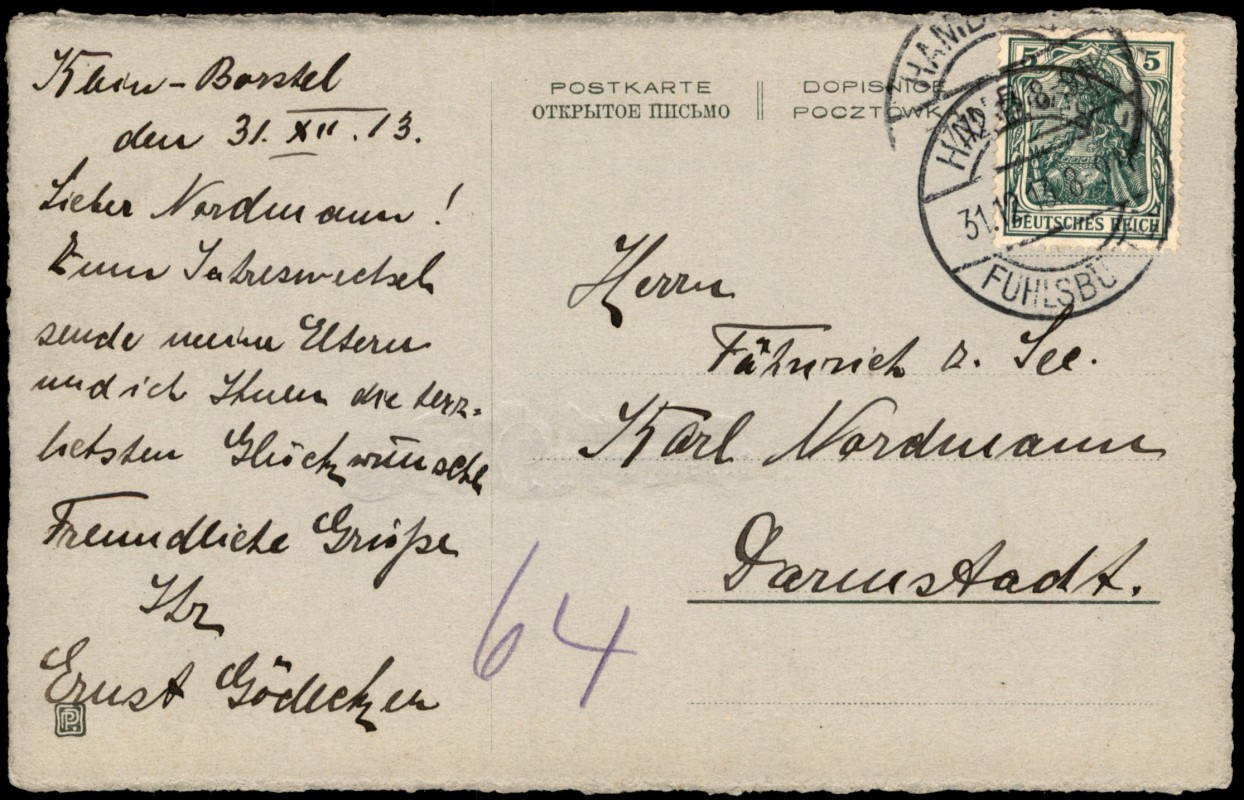 Klein-Borstel
den 31.XII.13.
Lieber Nordmann!
Zum Jahreswechsel
sende meine Eltern
und ich Ihnen die herz-
lichsten Glückwünsche
Freundliche Grüße
Ihr
Ernst Gödecken
P.
POSTKARTE
ОТКРЫТОЕ ПИСЬМО
DOPISNICE
POCZTOWK
5 5
DEUTSCHES REICH
HAMB
31.12.13.8-9N
FUHLSBÜ
Herrn
Fähnrich z. See.
Karl Nordmann
Darmstadt.
64